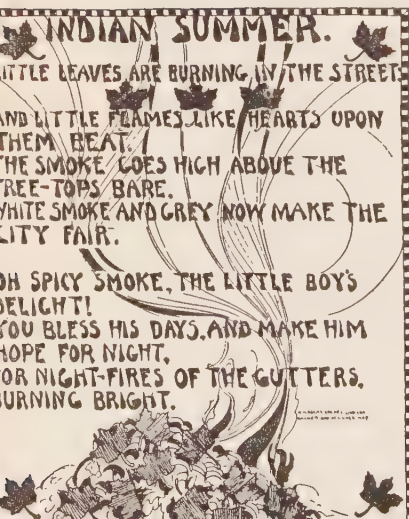 INDIAN SUMMER.
ITTLE LEAVES ARE BURNING IN THE STREETS
AND LITTLE FLAMES LIKE HEARTS UPON
THEM BEAT.
THE SMOKE GOES HIGH ABOVE THE
TREE-TOPS BARE.
WHITE SMOKE AND GREY NOW MAKE THE
CITY FAIR.
OH SPICY SMOKE, THE LITTLE BOY'S
DELIGHT!
YOU BLESS HIS DAYS, AND MAKE HIM
HOPE FOR NIGHT,
FOR NIGHT-FIRES OF THE GUTTERS,
BURNING BRIGHT.